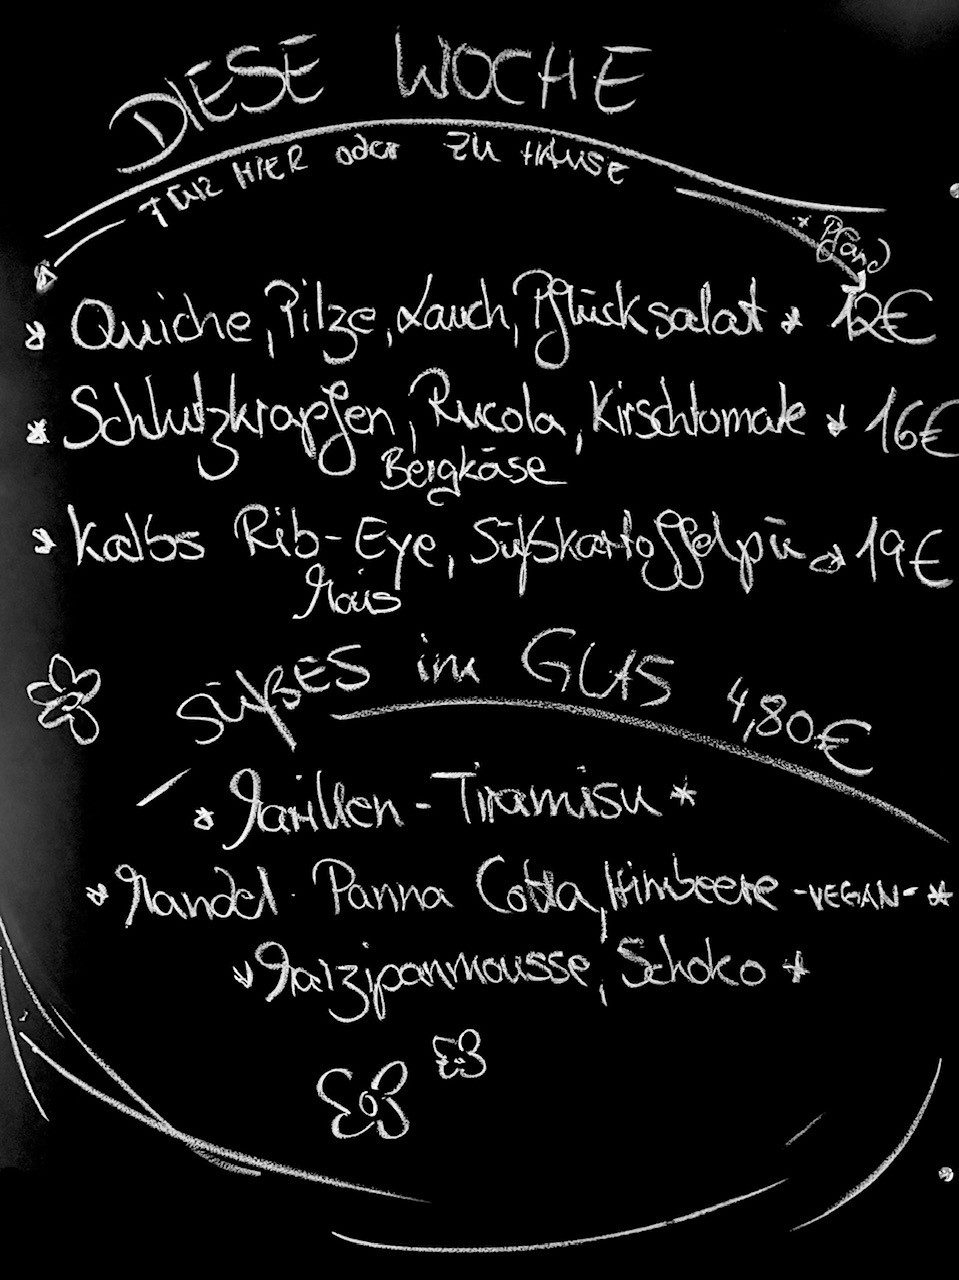 DIESE WOCHE
FÜR HIER oder ZU HAUSE
+ Pfand
Quiche, Pilze, Lauch, Pflücksalat 12€
Schlutzkrapfen, Rucola, Kirschtomate 16€
Bergkäse
Kalbs Rib-Eye, Süßkartoffelpü 19€
Mais
SÜßES im GLAS 4,80€
* Marillen - Tiramisu *
* Mandel - Panna Cotta, Himbeere - VEGAN - *
Marzipanmousse, Schoko